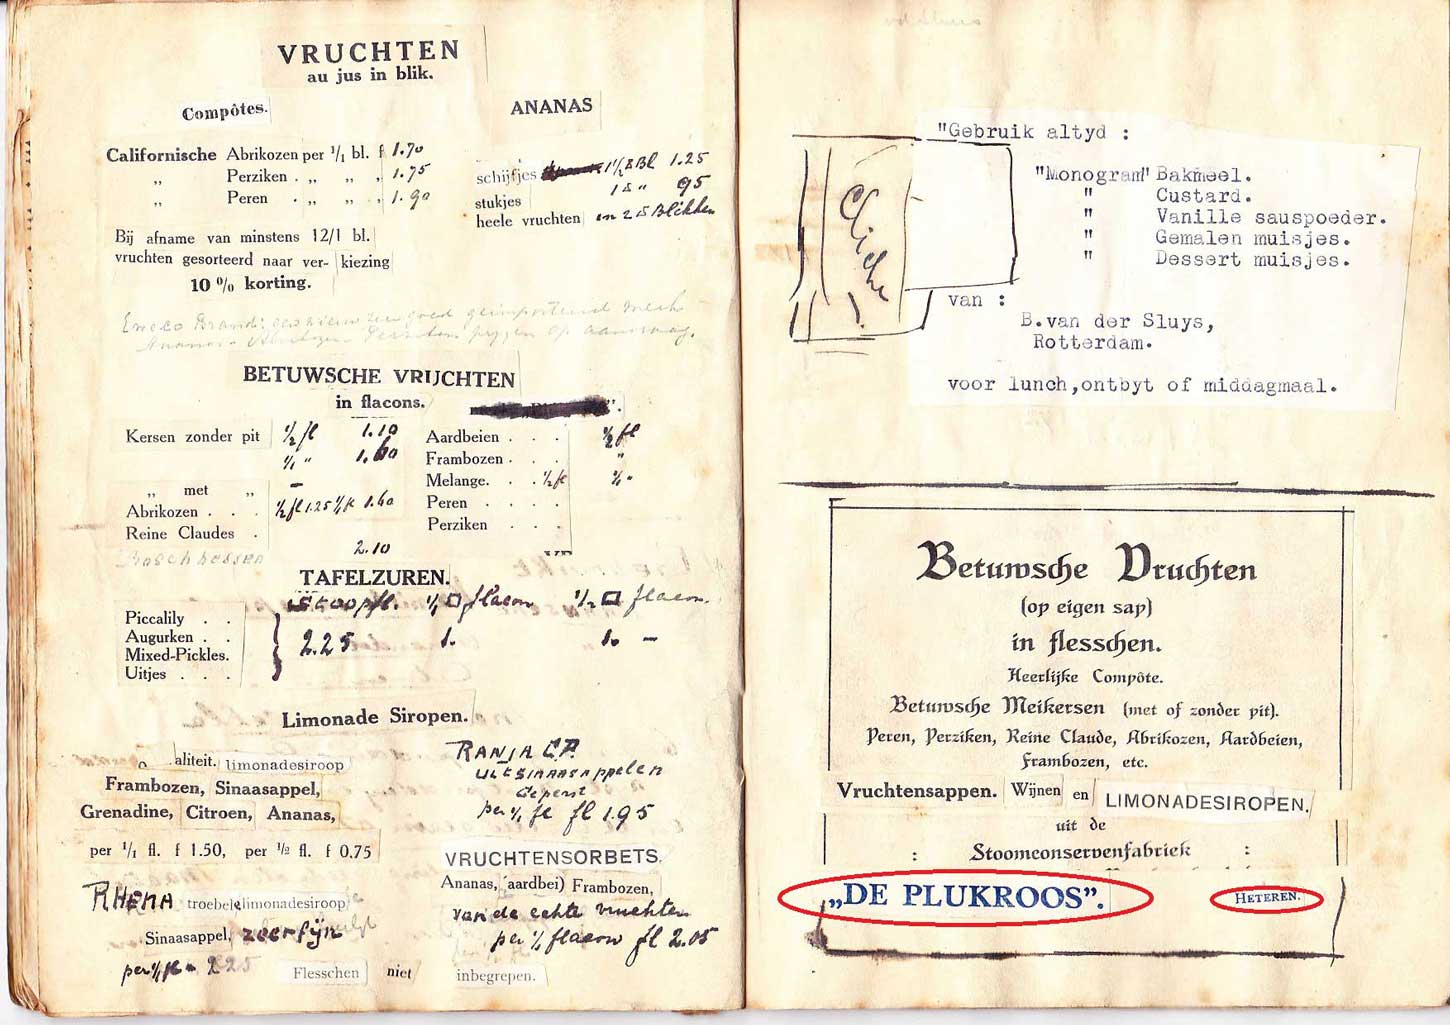 VRUCHTEN
au jus in blik.
Compôtes.
Californische Abrikozen per 1/1 bl. f 1.70
„ Perziken . „ „ „ 1.75
„ Peren . „ „ „ 1.90
Bij afname van minstens 12/1 bl.
vruchten gesorteerd naar ver- kiezing
10 % korting.
ANANAS
schijfjes 1 1/2 ℔ Bl 1.25
stukjes 1 ℔ " 95
heele vruchten in 2 ℔ Blikken
Brand: zeer goed geimporteerd merk
Ananas - prijzen op aanvraag.
BETUWSCHE VRUCHTEN
in flacons.
Kersen zonder pit 1/2 fl 1.10
1/1 " 1.60
„ met „ –
Abrikozen . . . 1/2 fl 1.25 1/1 fl 1.60
Reine Claudes .
Boschbessen 2.10
Aardbeien . . . 1/2 fl
Frambozen . . . "
Melange. . . 1/2 fl 1/1 "
Peren . . . .
Perziken . . .
TAFELZUREN.
Stoopfl. 1/1 □ flacon 1/2 □ flacon.
Piccalily . .
Augurken . .
Mixed-Pickles.
Uitjes . . .
2.25 1. 1. –
Limonade Siropen.
aliteit. limonadesiroop
Frambozen, Sinaasappel,
Grenadine, Citroen, Ananas,
per 1/1 fl. f 1.50, per 1/2 fl. f 0.75
RHEMA troebele limonadesiroop
Sinaasappel, zeer fijn
per 1/1 fl = 2 25
RANJA C.P.
uit sinaasappelen
Geperst
per 1/1 fl fl 1.95
VRUCHTENSORBETS.
Ananas, aardbei) Frambozen,
van de echte vruchten
per 1/1 flacon fl 2.05
Flesschen niet inbegrepen.
"Gebruik altyd :
Cliché
"Monogram" Bakmeel.
" Custard.
" Vanille sauspoeder.
" Gemalen muisjes.
" Dessert muisjes.
van :
B.van der Sluys,
Rotterdam.
voor lunch,ontbyt of middagmaal.
Betuwsche Vruchten
(op eigen sap)
in flesschen.
Heerlijke Compôte.
Betuwsche Meikersen (met of zonder pit).
Peren, Perziken, Reine Claude, Abrikozen, Aardbeien,
Frambozen, etc.
Vruchtensappen. Wijnen en LIMONADESIROPEN.
uit de
: Stoomconservenfabriek :
„DE PLUKROOS”. HETEREN.